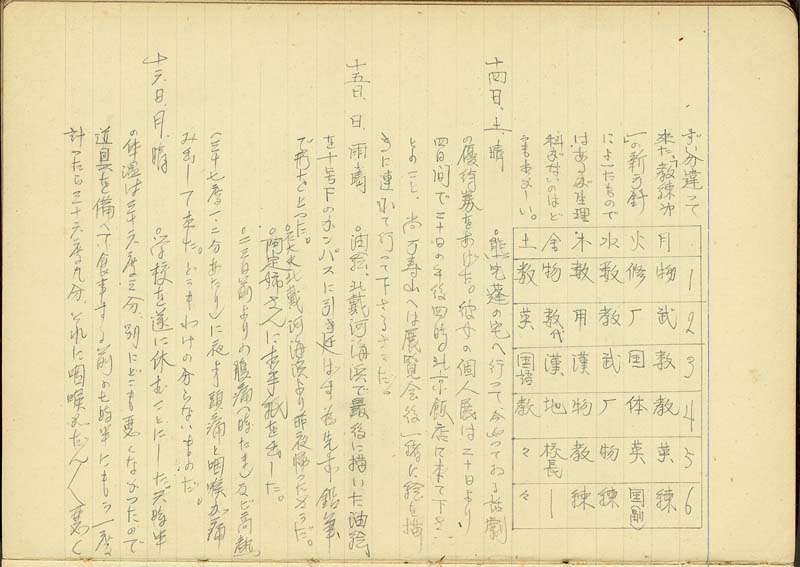 ずい分違って
来た。教練が
一の新方針
によったもので
はあるが生理
科がないのはど
うもおかしい。
1 2 3 4 5 6
月 物 武 教 教 英 練
火 修 厂 国 体 英 国(副)
水 数 教 武 厂 物 練
木 数 用 漢 物 教 練
金 物 教代 漢 地 校長 一
土 教 英 国語 教 々 々
十四日、土、晴
の優待券をあげた。彼女の個人展は二十日より
四日間で二十日の午後四時。北京飯店に来て下さい
とのこと、尚万寿山へは展覧会後一緒に絵を描
きに連れて行って下さるさうだ。
十五日、日、雨晴
。油絵、北戴河海浜で最後に描いた油絵
を十号下のカンパスに引き延ばす為先ず鉛筆
で形をとった。
北戴河海浜より昨夜帰ったさうだ。
姉さんにお手紙を出した。
。二三日前よりの腹痛(時たま)及び高熱
(三十七度一、二分あたり)に夜より頭痛と咽喉が痛
み出して来た。どうもわけの分らないものだ。
十六日、月、晴
。学校を遂に休むことにした。六時半
の体温は三十六度三分、別にどこも悪くなかったので
道具を備へて食事する前の七時半にもう一度
計ったら三十六度九分、それに咽喉もだん〳〵悪く